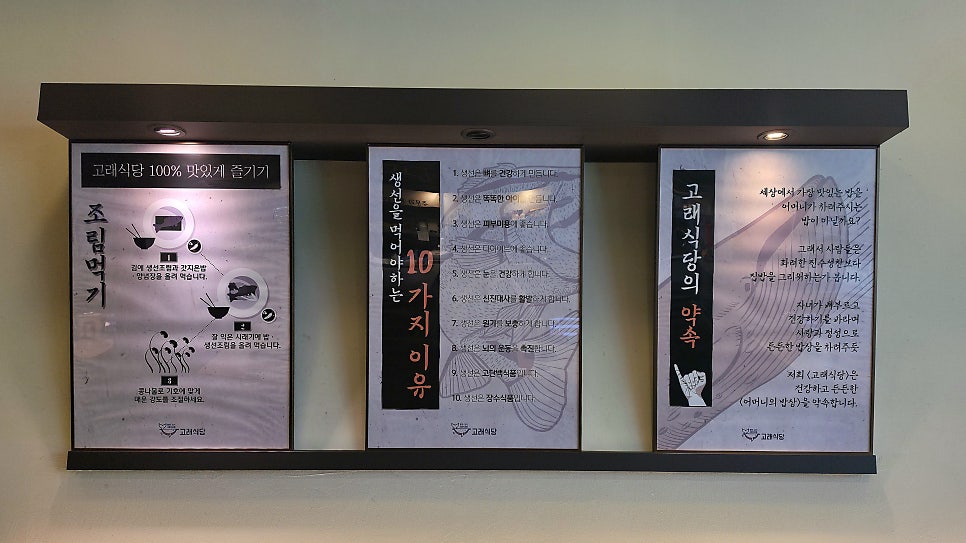 고래식당 100% 맛있게 즐기기
조림먹기
1
김에 생선조림과 갓지은밥
양념장을 올려 먹습니다.
2
잘 익은 시래기에 밥·
생선조림을 올려 먹습니다.
3
콩나물로 기호에 맞게
매운 강도를 조절하세요.
고래식당
생선을 먹어야하는
10가지 이유
1. 생선은 뼈를 건강하게 만듭니다.
2. 생선은 똑똑한 아이를 만듭니다.
3. 생선은 피부미용에 좋습니다.
4. 생선은 다이어트에 좋습니다.
5. 생선은 눈을 건강하게 합니다.
6. 생선은 신진대사를 활발하게 합니다.
7. 생선은 원기를 보충하게 합니다.
8. 생선은 뇌의 운동을 촉진합니다.
9. 생선은 고단백식품입니다.
10. 생선은 장수식품입니다.
고래식당
고래식당의 약속
세상에서 가장 맛있는 밥은
어머니가 차려주시는
밥이 아닐까요?
그래서 사람들은
화려한 진수성찬보다
집밥을 그리워하는가 봅니다.
자녀가 배부르고
건강하기를 바라며
사랑과 정성으로
든든한 밥상을 차려주듯
저희 <고래식당>은
건강하고 든든한
<어머니의 밥상>을 약속합니다.
고래식당